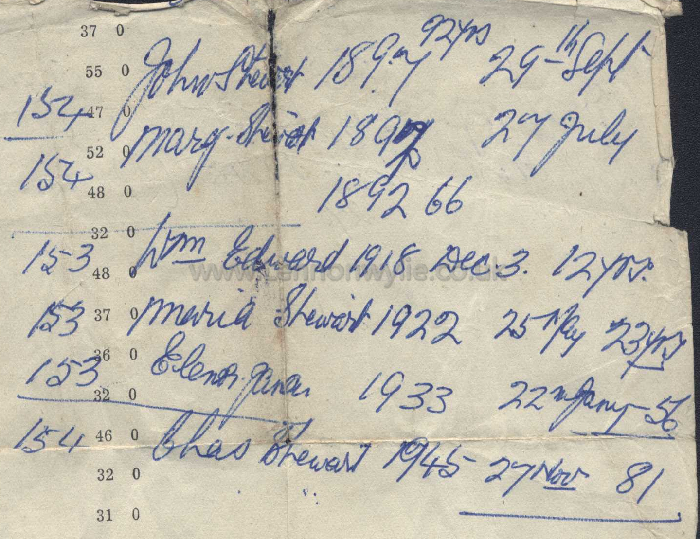 37 0
92 yrs
55 0 John Stewart 1897 29th Sept
154 47 0
52 0 Marg. Stewart 189 27 July
154
48 0 1892 66
32 0
153 Wm Edward 1918 Dec. 3. 12 yrs.
48 0
www.lennonwylie.co.uk
153 37 0 Maria Stewart 1922 25 May 23 yrs
36 0
153 Elenor 1933 22n Jany - 56
32 0
154 46 0 Chas Stewart 1945 27 Nov 81
32 0
31 0